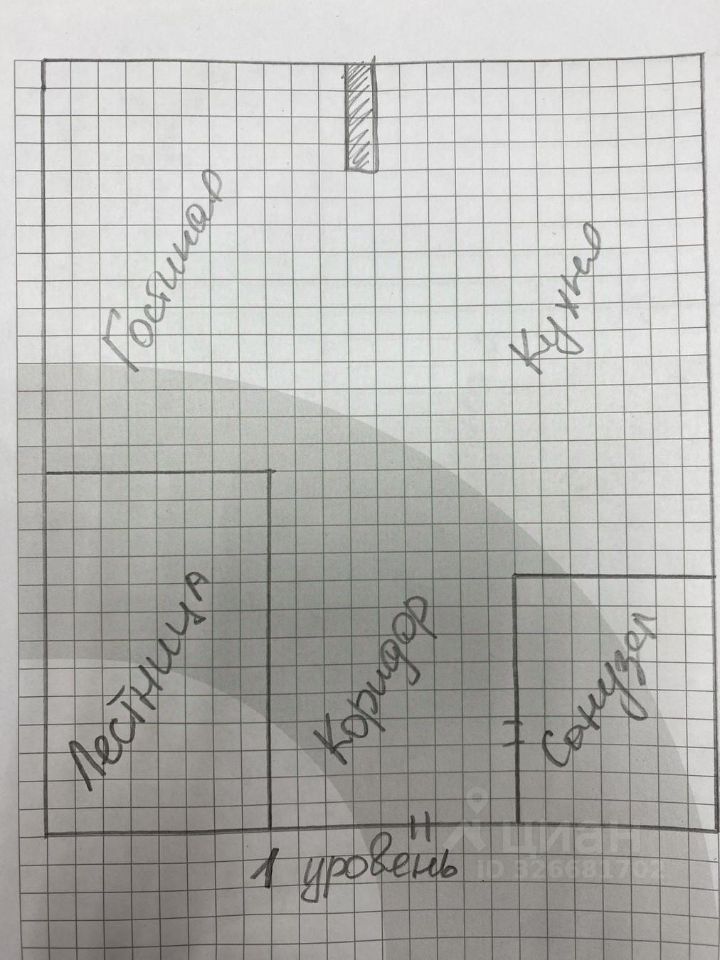 Гостиная
Кухня
Лестница
Коридор
Санузел
1 уровень
циан
ID 326681702